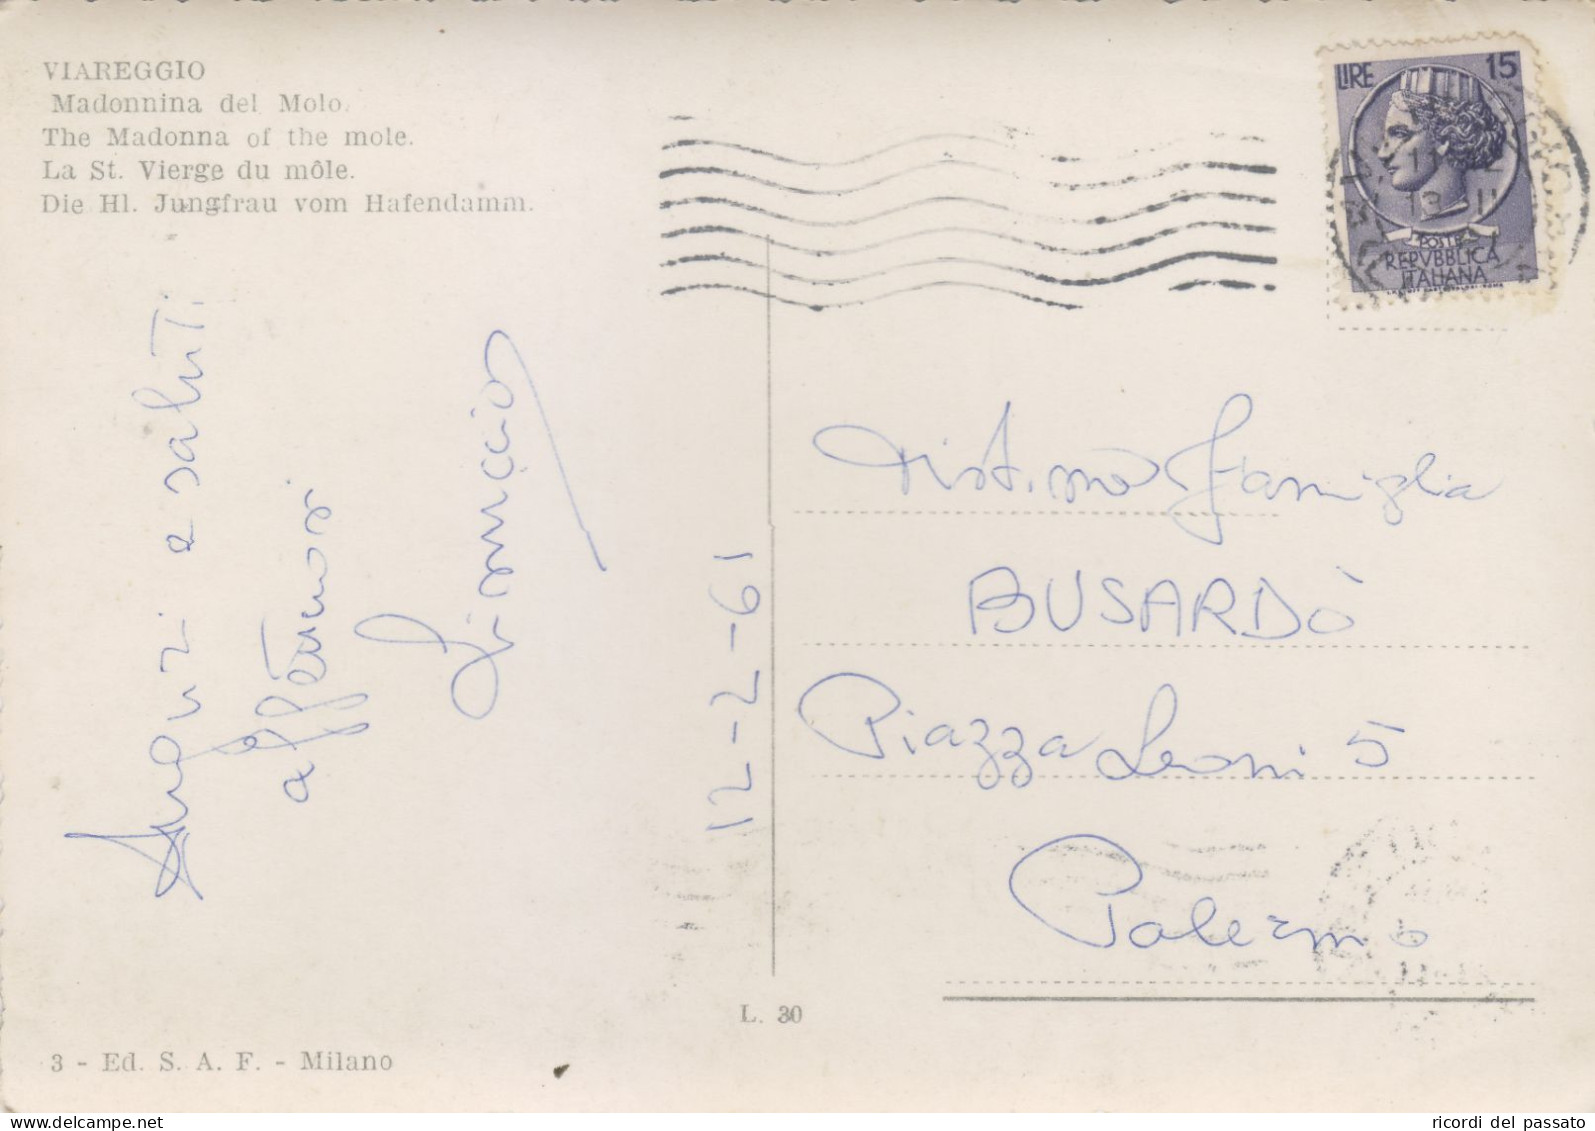 VIAREGGIO
Madonnina del Molo.
The Madonna of the mole.
La St. Vierge du môle.
Die Hl. Jungfrau vom Hafendamm.
LIRE 15
POSTE
REPVBBLICA
ITALIANA
13 II
Auguri e saluti
affettuosi
12-2-61
Famiglia
BUSARDÒ
Piazza Leoni 5
Palermo
L. 30
3 - Ed. S. A. F. - Milano
ricordi del passato